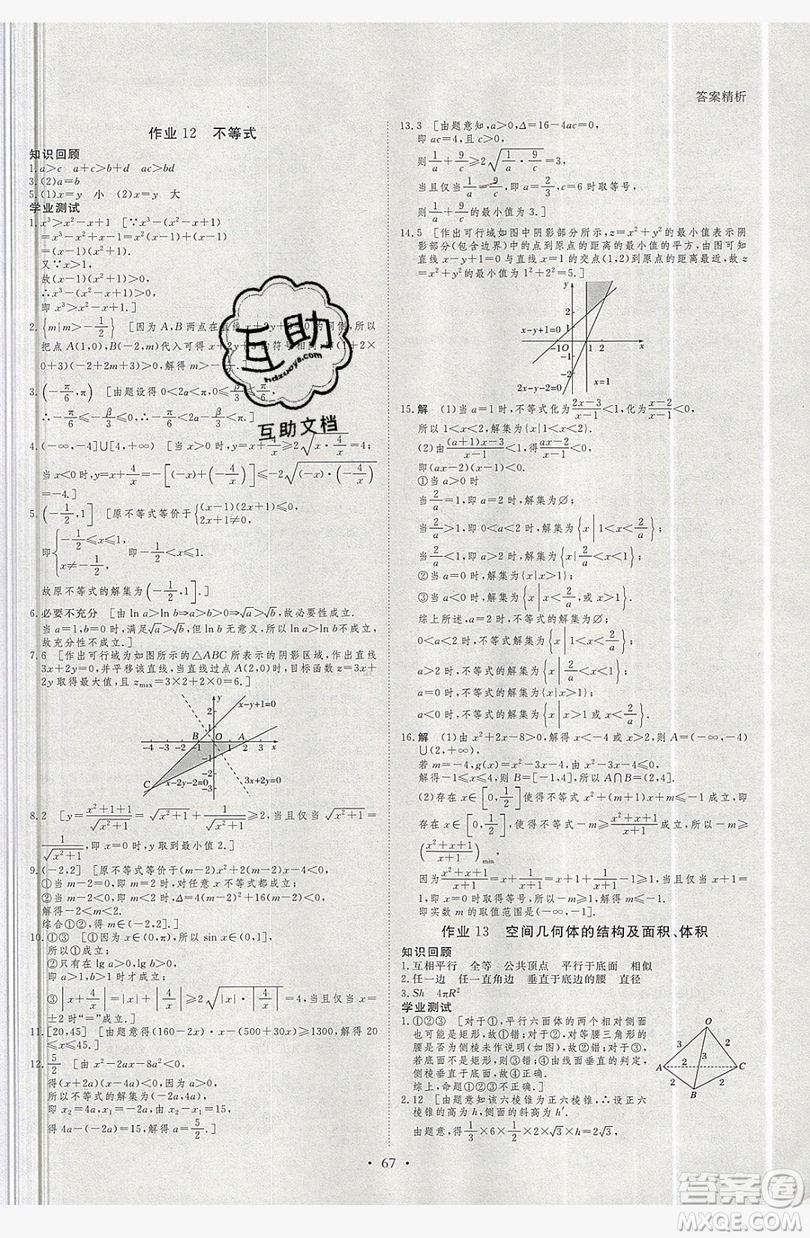 答案精析
作业 12　不等式
知识回顾
1.a>c　a+c>b+d　ac>bd
3.(2)a=b
5.(1)x=y　小　(2)x=y　大
学业测试
1.x³>x²-x+1　[∵x³-(x²-x+1)
=x³-x²+x-1=x²(x-1)+(x-1)
=(x-1)(x²+1).
又∵x>1,
故(x-1)(x²+1)>0.
∴x³-(x²-x+1)>0,
即 x³>x²-x+1.]
2.{m|m>-1/2}　[因为 A,B 两点在
所以
把点 A(1,0),B(-2,m)代入可得 x+2y+3 的符号相同,
+3)>0,解得 m>-1/2.]
3.(-π/6,π)　[由题设得 0<2α<π,0≤β/3≤π/6,
∴-π/6≤-β/3≤0,∴-π/6<2α-β/3<π.]
4.(-∞,-4]∪[4,+∞)　[当 x>0 时,y=x+4/x≥2√(x·4/x)=4;
当 x<0 时,y=x+4/x=-[(-x)+(-4/x)]≤-2√((-x)·(-4/x))
=-4.]
5.(-1/2,1]　[原不等式等价于{(x-1)(2x+1)≤0, 2x+1≠0.
即{-1/2≤x≤1, x≠-1/2, 即-1/2<x≤1.
故原不等式的解集为(-1/2,1].]
6.必要不充分　[由 ln a>ln b⇒a>b>0⇒√a>√b,故必要性成立.
当 a=1,b=0 时,满足√a>√b,但 ln b 无意义,所以 ln a>ln b 不成立,
故充分性不成立.]
7.6　[作出可行域如图所示的△ABC 所表示的阴影区域,作出直线
3x+2y=0,并平移该直线,当直线过点 A(2,0)时,目标函数 z=3x+
2y 取得最大值,且 zmax=3×2+2×0=6.]
x-y+1=0
-4 -3 -2 -1 O 1 2 x
A B C
3x+2y=0
8.2　[y=(x²+1+1)/√(x²+1)=√(x²+1)+1/√(x²+1)≥2,当且仅当√(x²+1)=
1/√(x²+1),即 x=0 时,y 取到最小值 2.]
9.(-2,2]　[原不等式等价于(m-2)x²+2(m-2)x-4<0.
①当 m-2=0,即 m=2 时,对任意 x 不等式都成立;
②当 m-2<0,即 m<2 时,Δ=4(m-2)²+16(m-2)<0,
解得-2<m<2.
综合①②,得 m∈(-2,2].]
10.①③　[①中,因为 x∈(0,π),所以 sin x∈(0,1],
所以①成立;
②中 a>0,b>0 时,lg a>0,lg b>0 不一定成立,因此②不成立;
③中|a+4/a|=|a|+|4/a|≥2√(|a|·|4/a|)=4,当且仅当|a|=2
时“=”成立.]
11.[20,45]　[由题意得(160-2x)·x-(500+30x)≥1300,解得 20
≤x≤45.]
12.5/2　[由 x²-2ax-8a²<0,
得(x+2a)(x-4a)<0,因为 a>0,
所以不等式的解集为(-2a,4a),
即 x₂=4a,x₁=-2a,由 x₂-x₁=15,
得 4a-(-2a)=15,解得 a=5/2.]
13.3　[由题意知,a>0,Δ=16-4ac=0,
即 ac=4,c>0,
则 1/a+9/c≥2√(1/a·9/c)=3,
当且仅当 1/a=9/c,即 a=2/3,c=6 时取等号,
则 1/a+9/c 的最小值为 3.]
14.5　[作出可行域如图中阴影部分所示,x²+y² 的最小值表示阴影
部分(包含边界)中的点到原点的距离的最小值的平方,由図得
直线 x-y+1=0 与直线 x=1 的交点(1,2)到原点的距离最小,故
x²+y² 的最小值为 1²+2²=5.]
x-y+1=0
O 1 2 x
2x-y-2=0
x=1
15.解　(1)当 a=1 时,不等式化为(2x-3)/(x-1)-1<0,化为(x-2)/(x-1)<0,
所以 1<x<2,解集为{x|1<x<2}.
(2)由((a+1)x-3)/(x-1)<1,得(ax-2)/(x-1)<0,
即(ax-2)(x-1)<0.
①当 a>0 时
当 2/a=1,即 a=2 时,解集为∅;
当 2/a>1,即 0<a<2 时,解集为{x|1<x<2/a};
当 2/a<1,即 a>2 时,解集为{x|2/a<x<1}.
②当 a=0 时,解集为{x|x>1}.
③当 a<0 时,解集为{x|x<2/a,或 x>1}.
综上所述,a=2 时,不等式的解集为∅;
0<a<2 时,不等式的解集为{x|1<x<2/a};
a>2 时,不等式的解集为{x|2/a<x<1};
a=0 时,不等式的解集为{x|x>1};
a<0 时,不等式的解集为{x|x<2/a,或 x>1}.
16.解　(1)由 x²+2x-8>0,解得 x<-4 或 x>2,则 A=(-∞,-4)
∪(2,+∞).
若 m=-4,g(x)=x²-3x-4≤0,
解得-1≤x≤4,则 B=[-1,4],所以 A∩B=(2,4].
(2)存在 x∈[0,1/2],使得不等式 x²-3x+m≤
-1,即存在 x∈[0,1/2],使得不等式
因为(x²+x+1)/(x+1)=x+1/(x+1)=x+1+1/(x+1)-1≥2-1=1,当且仅当 x+1
=1/(x+1),即 x=0 时,取等号.所以-m≥1,解得 m≤-1.
即实数 m 的取值范围是(-∞,-1].
作业 13　空间几何体的结构及面积、体积
知识回顾
1.互相平行　全等　公共顶点　平行于底面　相似
2.任一边　任一直角边　垂直于底边的腰　直径
3.Sh　4πR²
学业测试
1.①②③　[对于①,平行六面体的两个相对侧面
也可能是矩形,故①错;对于②,等腰三角形的
腰是否为侧棱未作说明(如图),故②错;对于③,
若底面不是矩形,则③错;④由线面垂直的判定,
侧棱垂直于底面,故④正确.
综上,命题①②③不正确.]
2.12　[由题意知该六棱锥为正六棱锥,设正六
棱锥的高为 h,侧面的斜高为 h′.
由题意,得 1/3×6×1/2×2×√3×h=2√3,
O A B C 2 3 2 3 2
• 67 •
互助
hdzuoye.com
互助文档
答案圈
MXQE.COM